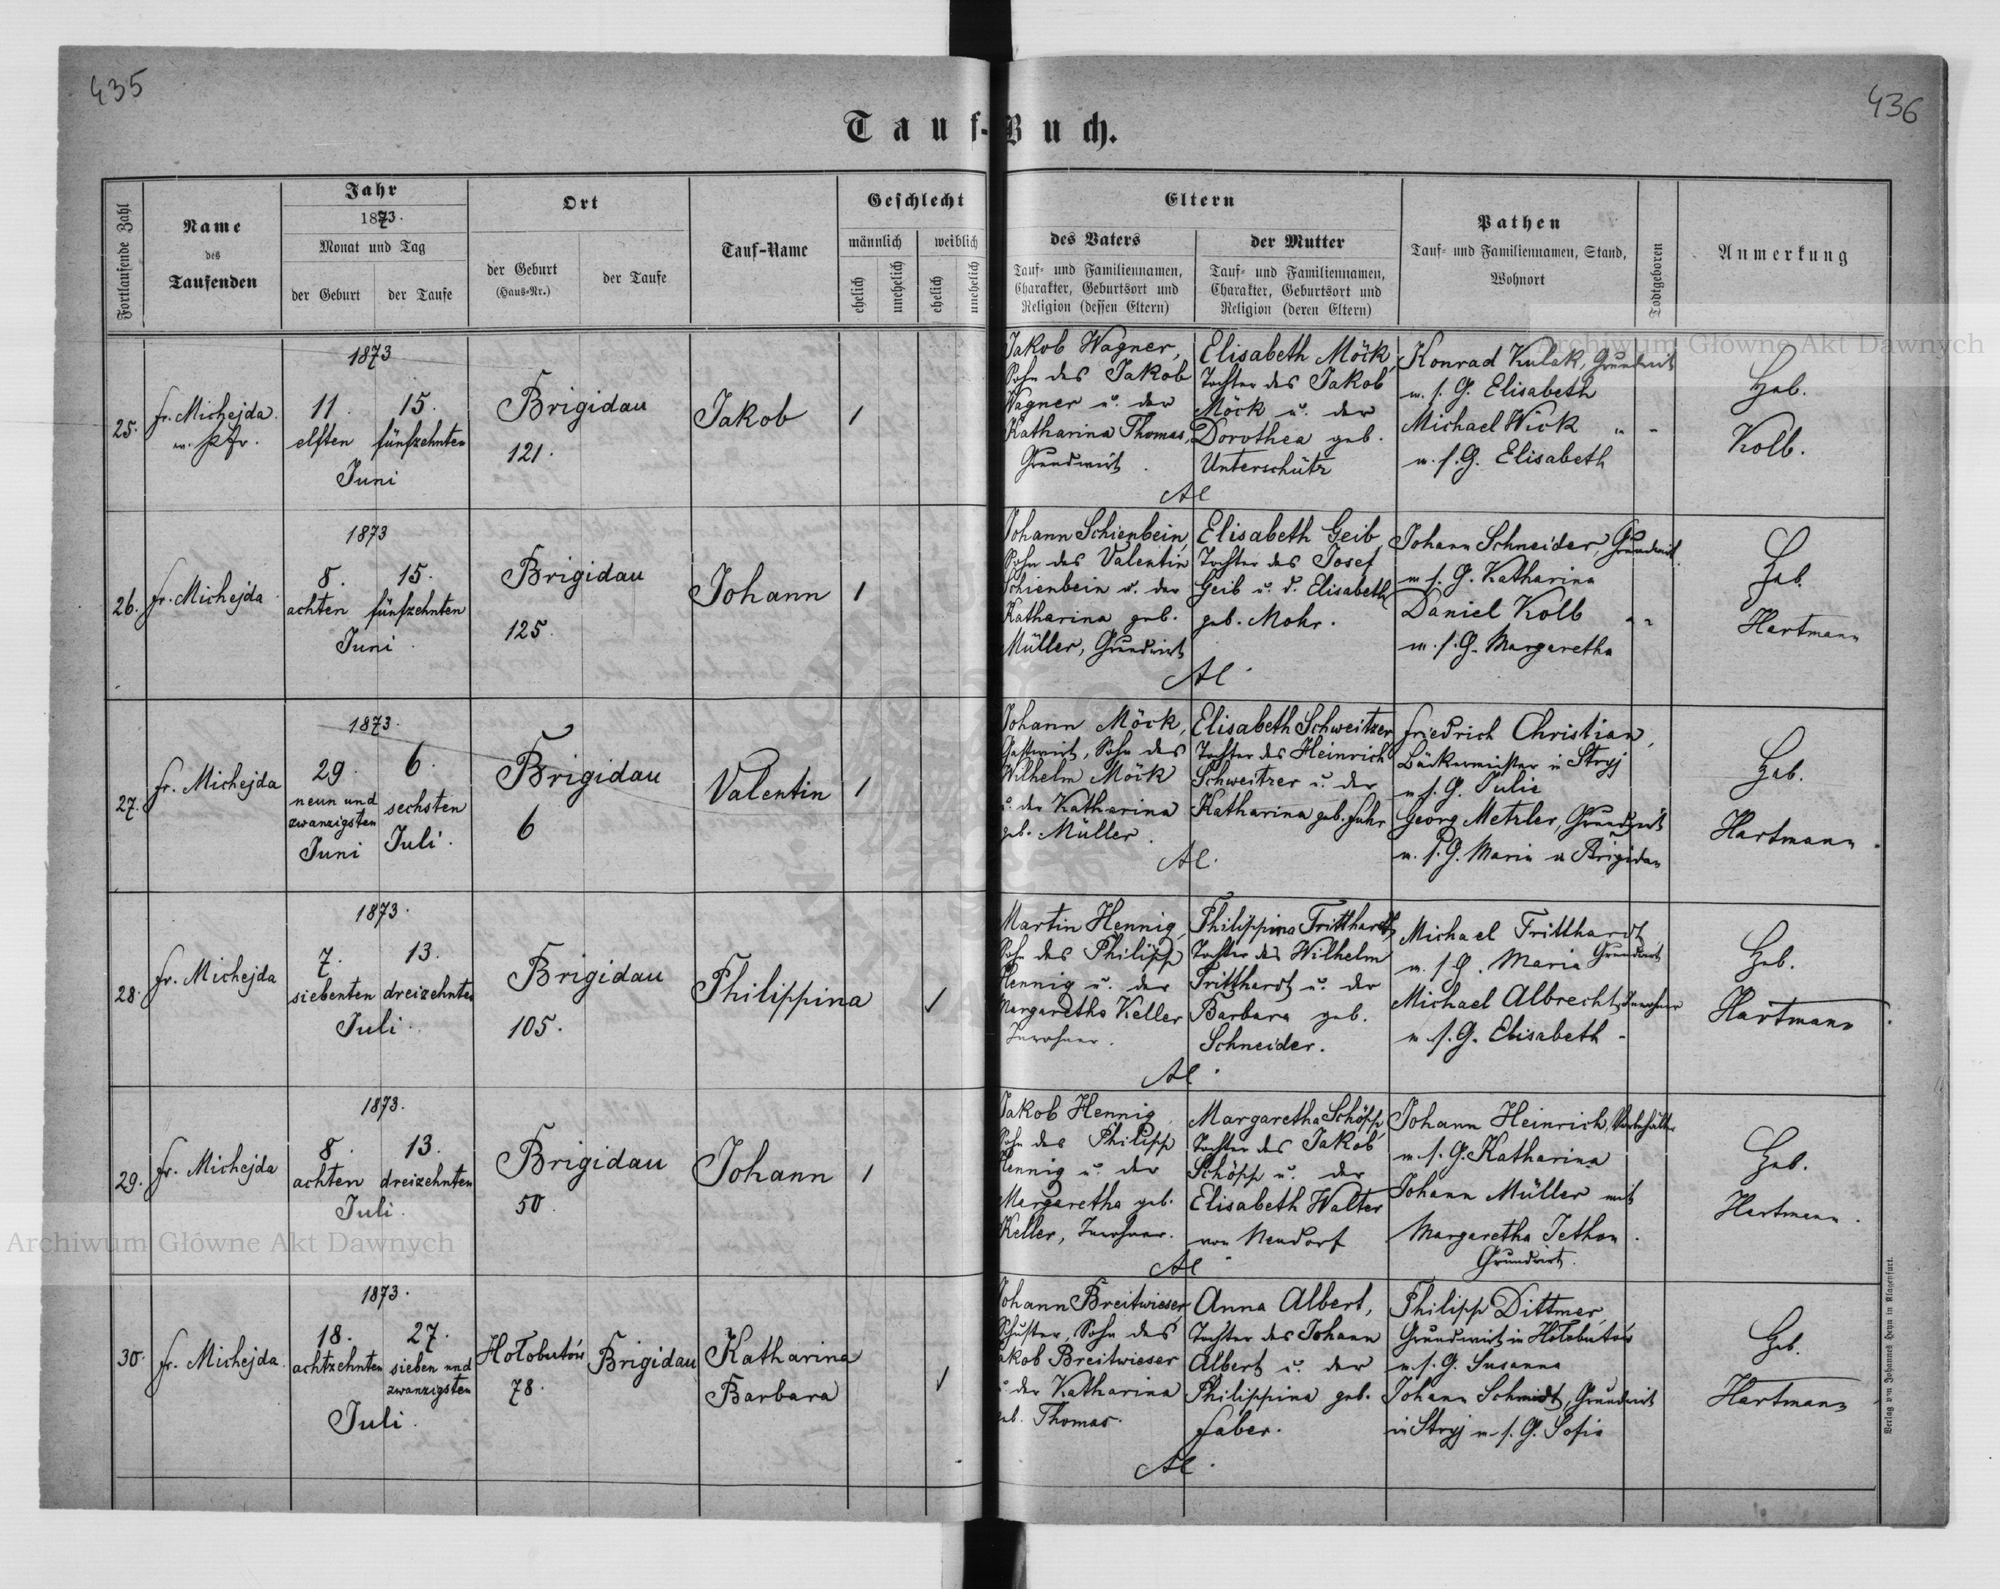 435
436
Tauf-Buch.
Fortlaufende Zahl
Name
des
Taufenden
Jahr
1873.
Monat und Tag
der Geburt
der Taufe
Ort
der Geburt
(Haus-Nr.)
der Taufe
Tauf-Name
Geschlecht
männlich
weiblich
ehelich
unehelich
ehelich
unehelich
Eltern
des Vaters
Tauf- und Familiennamen,
Charakter, Geburtsort und
Religion (dessen Eltern)
der Mutter
Tauf- und Familiennamen,
Charakter, Geburtsort und
Religion (deren Eltern)
Pathen
Tauf- und Familiennamen, Stand,
Wohnort
Todtgeboren
Anmerkung
25.
fr. Michejda
w. Pfr.
1873
11.
elften
15.
fünfzehnten
Juni
Brigidau
121.
Jakob
1
Jakob Wagner,
Sohn des Jakob
Wagner u. der
Katharina Thomas,
Grundwirt.
Elisabeth Möck,
Tochter des Jakob
Möck u. der
Dorothea geb.
Unterschütz
AC
Konrad Kulak, Grundwirt
m. s. G. Elisabeth
Michael Wick " "
m. s. G. Elisabeth
Heb.
Kolb.
26.
fr. Michejda
1873
8.
achten
15.
fünfzehnten
Juni.
Brigidau
125.
Johann
1
Johann Schienbein,
Sohn des Valentin
Schienbein u. der
Katharina geb.
Müller, Grundwirt
Elisabeth Geib,
Tochter des Josef
Geib u. d. Elisabeth
geb. Mohr.
AC.
Johann Schneider, Grundwirt
m. s. G. Katharina
Daniel Kolb " "
m. s. G. Margaretha
Heb.
Hartmann
27.
fr. Michejda
1873.
29.
neun und
zwanzigsten
Juni
6.
sechsten
Juli.
Brigidau
6
Valentin
1
Johann Möck,
Gastwirt, Sohn des
Wilhelm Möck
u. der Katharina
geb. Müller.
Elisabeth Schweitzer
Tochter des Heinrich
Schweitzer u. der
Katharina geb. Fuhr
AC.
Friedrich Christian,
Bäckermeister in Stryj
m s. G. Julie
Georg Metzler, Grundwirt
m. s. G. Maria in Brigidau
Heb.
Hartmann.
28.
fr. Michejda
1873.
7.
siebenten
13.
dreizehnten
Juli.
Brigidau
105.
Philippina
✓
Martin Hennig,
Sohn des Philipp
Hennig u. der
Margaretha Keller
Inwohner.
Philippina Tritthardt,
Tochter des Wilhelm
Tritthardt u. der
Barbara geb.
Schneider.
AC.
Michael Tritthardt,
m. s. G. Maria Grundwirt
Michael Albrecht, Inwohner
m s. G. Elisabeth.
Heb.
Hartmann.
29.
fr. Michejda
1873.
8.
achten
13.
dreizehnten
Juli.
Brigidau
50.
Johann
1
Jakob Hennig,
Sohn des Philipp
Hennig u. der
Margaretha geb.
Keller, Inwohner.
Margaretha Schöpp,
Tochter des Jakob
Schöpp u. der
Elisabeth Walter
von Neudorf
AC
Johann Heinrich,
m. s. G. Katharina
Johann Müller mit
Margaretha Jethon.
Grundwirt.
Heb.
Hartmann.
30.
fr. Michejda.
1873.
18.
achtzehnten
27.
sieben und
zwanzigsten
Juli.
Hołobutów
78.
Brigidau
Katharina
Barbara
✓
Johann Breitwieser,
Schuster, Sohn des
Jakob Breitwieser
u. der Katharina
geb. Thomas.
Anna Albert,
Tochter des Johann
Albert u. der
Philippina geb.
Faber.
AC.
Philipp Dittmer,
Grundwirt in Hołobutów
m. s. G. Susanna
Johann Schmidt, Grundwirt
in Stryj m. s. G. Sofie
Heb.
Hartmann
Verlag von Johannes Heyn in Klagenfurt.
Archiwum Główne Akt Dawnych
Archiwum Główne Akt Dawnych